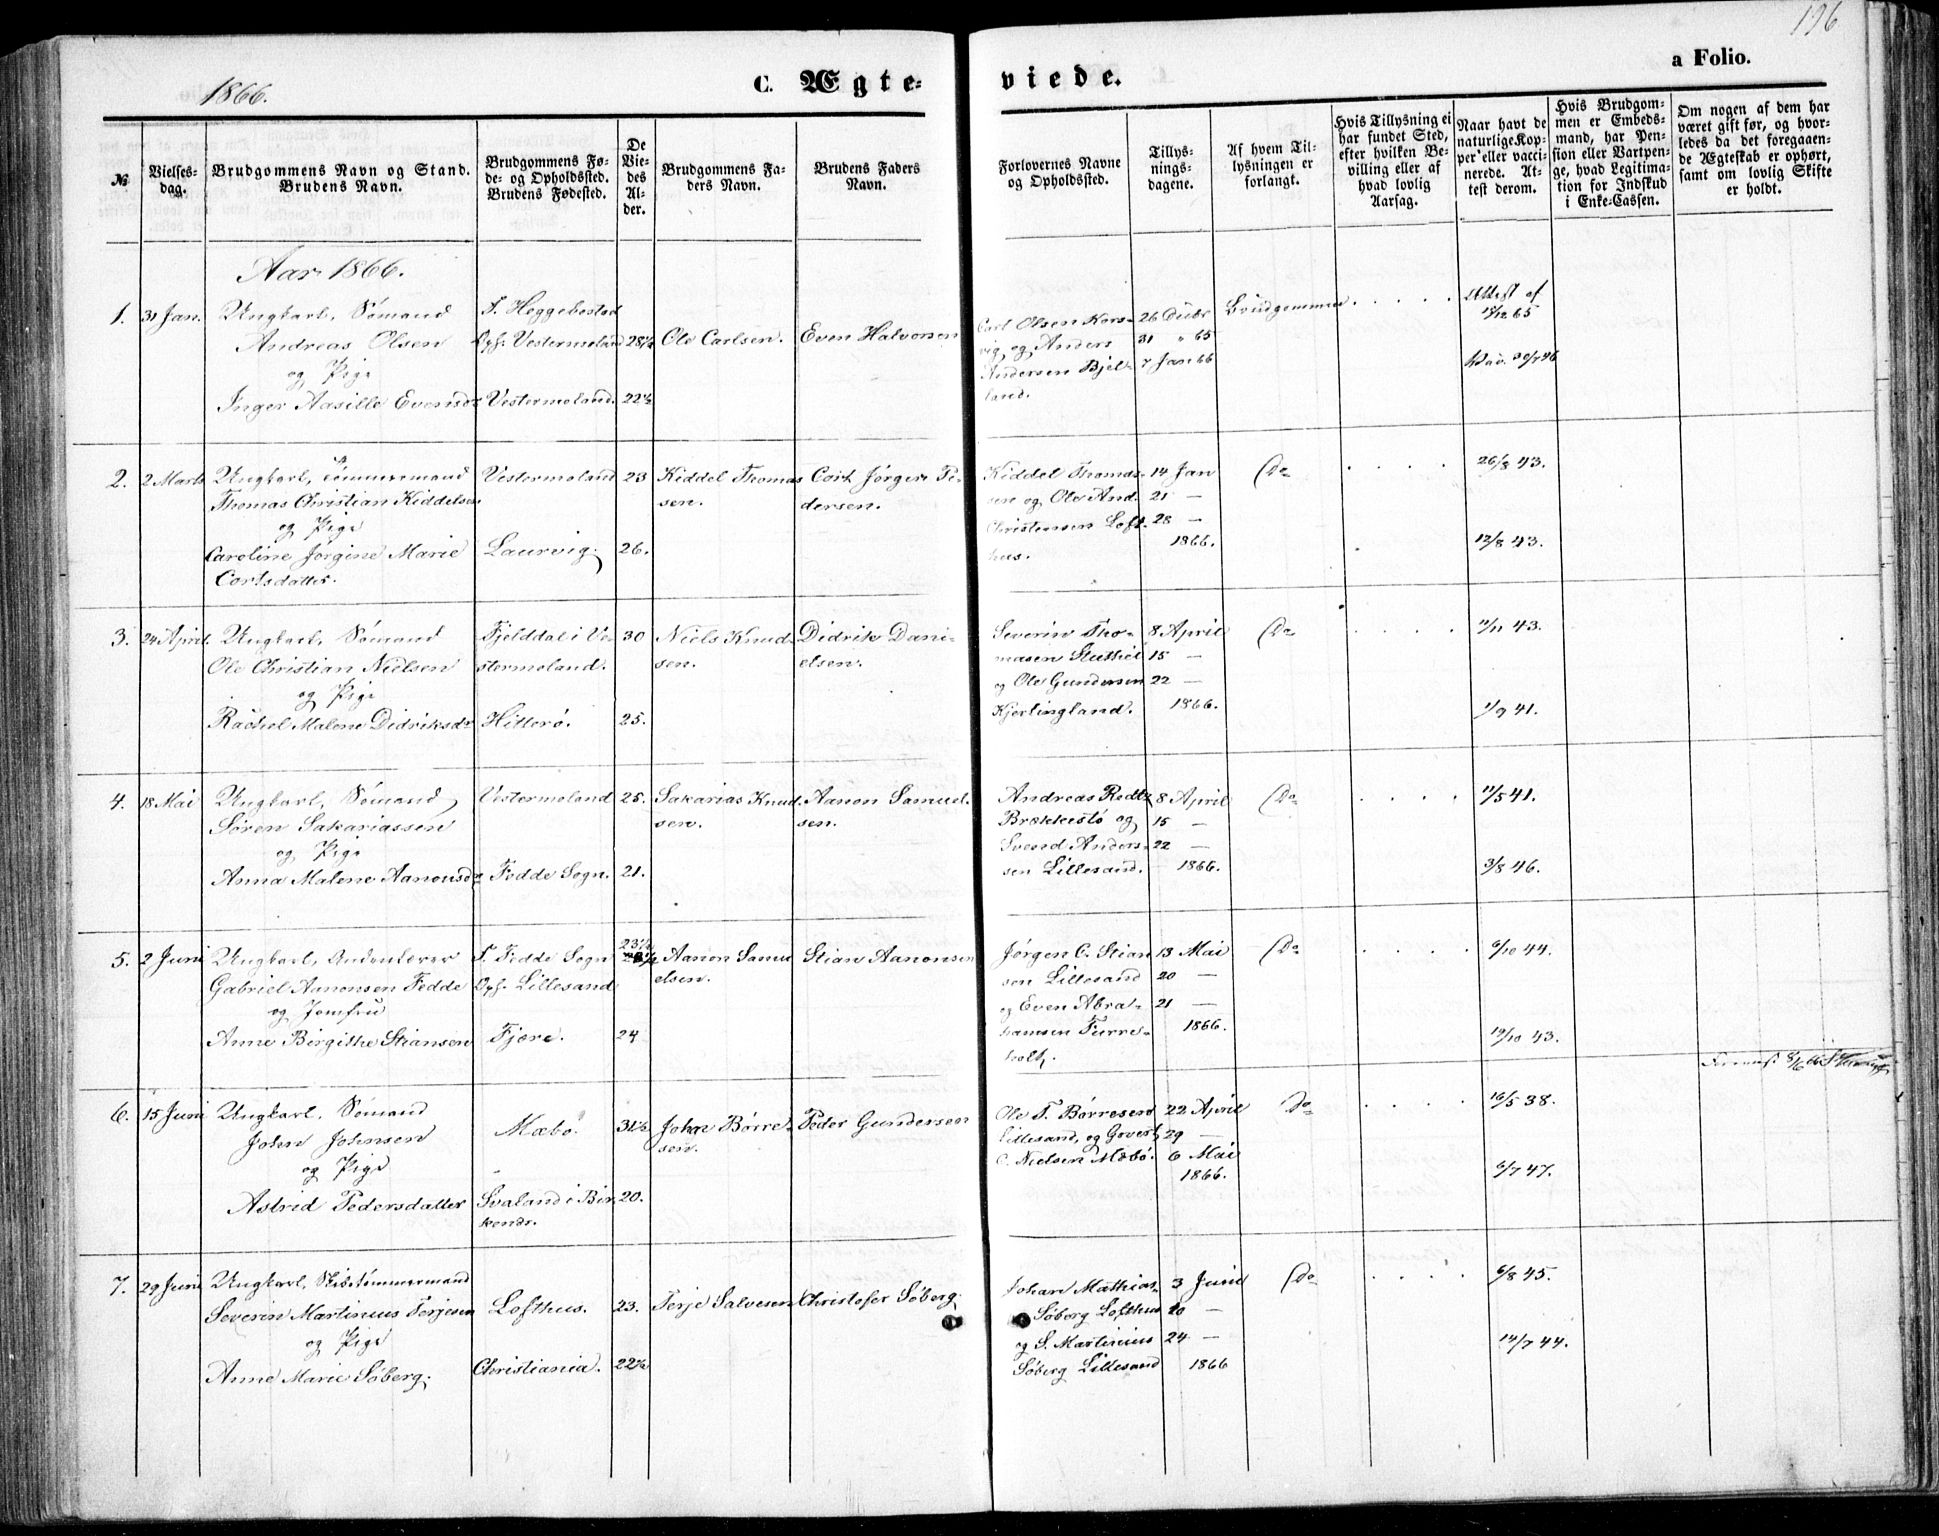 196
1866.
C. Ægte-
viede.
a Folio.
№
Vielses-
dag.
Brudgommens Navn og Stand.
Brudens Navn.
Brudgommens Fø-
de- og Opholdssted.
Brudens Fødested.
De
Vie-
des
Al-
der.
Brudgommens Fa-
ders Navn.
Brudens Faders
Navn.
Forlovernes Navne
og Opholdssted.
Tillys-
nings-
dagene.
Af hvem Til-
lysningen er
forlangt.
Hvis Tillysning ei
har fundet Sted,
efter hvilken Be-
villing eller af
hvad lovlig
Aarsag.
Naar havt de
naturlige Kop-
per eller vacci-
nerede. At-
test derom.
Hvis Brudgom-
men er Embeds-
mand, har Pen-
sion eller Vartpen-
ge, hvad Legitima-
tion for Indskud
i Enke-Cassen.
Om nogen af dem har
været gift før, og hvor-
ledes da det foregaaen-
de Ægteskab er ophørt,
samt om lovlig Skifte
er holdt.
Aar 1866.
1. 31 Jan.
Ungkarl, Sømand
Andreas Olsen
og Pige
Inger Aasille Evensdr
F. Heggebostad
Oph. Vestermoland
Vestermoland.
28½
22½
Ole Carlsen.
Even Halvorsen
Carl Olsen Kors-
vig, og Anders
Andersen Bjel-
land.
26 Dcbr
31 " 65
7 Jan 66
Brudgommen . . . . .
Attest af
65
30/7 46
2. 2 Marts
Ungkarl, Tømmermand
Thomas Christian Kiddelsen
og Pige
Caroline Jørgine Marie
Cortsdatter.
Vestermoland
Laurvig.
23
26.
Kiddel Thomas-
sen.
Cort Jørgen Pe-
dersen.
Kiddel Thomas-
sen og Ole And.
Christensen Loft-
hus.
14 Jan
21 —
28 —
1866.
Do . . . .
26/8 43.
12/8 43.
3. 24 April.
Ungkarl, Sømand
Ole Christian Nielsen
og Pige
Rachel Malene Didriksdr
Fjelddal i Ve-
stermoland.
Hitterø.
30
25.
Niels Knud-
sen.
Didrik Dani-
elsen.
Severin Tho-
masen
og Ole Gundersen
Kjerlingland.
8 April
15 —
22 —
1866.
Do . . . .
11/11 43.
1/9 41.
4. 18 Mai
Ungkarl, Sømand
Søren Sakariassen
og Pige
Anna Malene Aanonsdr
Vestermoland
Fedde Sogn.
25.
21.
Sakarias Knud-
sen.
Aanon Samuel-
sen.
Andreas
Brækkestø og
Svend Anders-
sen Lillesand.
8 April
15 —
22 —
1866.
Do . . . .
11/5 41.
3/8 46.
5. 2 Juni
Ungkarl,
Gabriel Aanonsen Fedde
og Jomfru
Anne Birgithe Stiansen
F. Fedde Sogn
Oph. Lillesand
Fjære.
23½
24
Aanon Samu-
elsen.
Stian Aanonsen
Jørgen C. Stian
sen Lillesand
og Even Abra-
hamsen Turre-
holt.
13 Mai
20 —
21 —
1866.
Do . . . .
6/10 44.
19/10 43.
8/6 66
6. 15 Juni
Ungkarl. Sømand
John Johnsen
og Pige
Astrid Pedersdatter
Mæbø.
Svaland i Bir-
kenes.
31½
20.
John Børre-
sen.
Peder Gundersen
Ole T. Børresen
Lillesand, og Govert
C. Nielsen Mæbø.
22 April
29 —
6 Mai
1866.
Do . . . .
16/5 38.
6/7 47.
7. 29 Juni
Ungkarl, Skibstømmermand
Severin Martinius Terjesen
og Pige
Anne Marie Søberg.
Lofthus.
Christiania.
23.
22½
Terje Salvesen
Christofer Søberg.
Johan Mathias
Søberg Lofthus
og S. Martinius
Søberg Lillesand
3 Juni
20 —
24 —
1866
Do . . . .
6/8 45.
14/7 44.